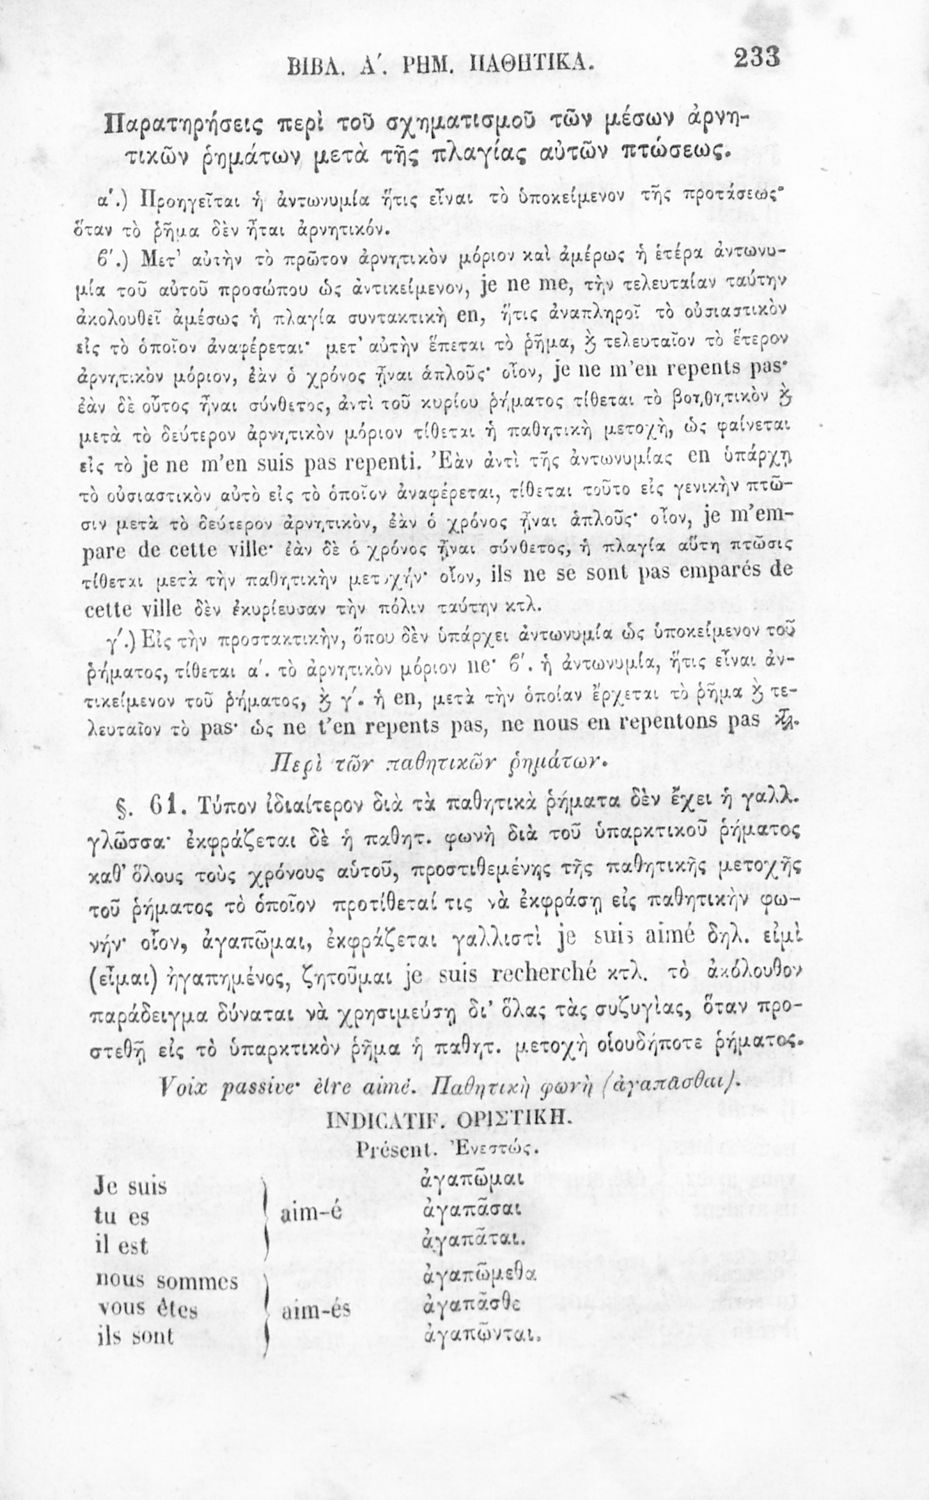 ΒΙΒΛ. Α΄. ΡΗΜ. ΠΑΘΗΤΙΚΑ. 233
Παρατηρήσεις περὶ τοῦ σχηματισμοῦ τῶν μέσων ἀρνη-
τικῶν ῥημάτων μετὰ τῆς πλαγίας αὐτῶν πτώσεως.
α΄.) Προηγεῖται ἡ ἀντωνυμία ἥτις εἶναι τὸ ὑποκείμενον τῆς προτάσεως·
ὅταν τὸ ῥῆμα δὲν ἦται ἀρνητικόν.
β΄.) Μετ᾿ αὐτὴν τὸ πρῶτον ἀρνητικὸν μόριον καὶ ἀμέρως ἡ ἑτέρα ἀντωνυ-
μία τοῦ αὐτοῦ προσώπου ὡς ἀντικείμενον, je ne me, τὴν τελευταίαν ταύτην
ἀκολουθεῖ ἀμέσως ἡ πλαγία συντακτικὴ en, ἥτις ἀναπληροῖ τὸ οὐσιαστικὸν
εἰς τὸ ὁποῖον ἀναφέρεται· μετ᾿ αὐτὴν ἕπεται τὸ ῥῆμα, ϗ τελευταῖον τὸ ἕτερον
ἀρνητικὸν μόριον, ἐὰν ὁ χρόνος ἦναι ἁπλοῦς· οἷον, je ne m'en repents pas·
ἐὰν δὲ οὗτος ἦναι σύνθετος, ἀντὶ τοῦ κυρίου ῥήματος τίθεται τὸ βοηθητικὸν ϗ
μετὰ τὸ δεύτερον ἀρνητικὸν μόριον τίθεται ἡ παθητικὴ μετοχὴ, ὡς φαίνεται
εἰς τὸ je ne m'en suis pas repenti. Ἐὰν ἀντὶ τῆς ἀντωνυμίας en ὑπάρχῃ
τὸ οὐσιαστικὸν αὐτὸ εἰς τὸ ὁποῖον ἀναφέρεται, τίθεται τοῦτο εἰς γενικὴν πτῶ-
σιν μετὰ τὸ δεύτερον ἀρνητικὸν, ἐὰν ὁ χρόνος ἦναι ἁπλοῦς· οἷον, je m'em-
pare de cette ville· ἐὰν δὲ ὁ χρόνος ἦναι σύνθετος, ἡ πλαγία αὕτη πτῶσις
τίθεται μετὰ τὴν παθητικὴν μετοχήν· οἷον, ils ne se sont pas emparés de
cette ville δὲν ἐκυρίευσαν τὴν πόλιν ταύτην κτλ.
γ΄.) Εἰς τὴν προστακτικὴν, ὅπου δὲν ὑπάρχει ἀντωνυμία ὡς ὑποκείμενον τοῦ
ῥήματος, τίθεται α΄. τὸ ἀρνητικὸν μόριον ne· β΄. ἡ ἀντωνυμία, ἥτις εἶναι ἀν-
τικείμενον τοῦ ῥήματος, ϗ γ΄. ἡ en, μετὰ τὴν ὁποίαν ἔρχεται τὸ ῥῆμα ϗ τε-
λευταῖον τὸ pas· ὡς ne t'en repents pas, ne nous en repentons pas κτλ.
Περὶ τῶν παθητικῶν ῥημάτων.
§. 61. Τύπον ἰδιαίτερον διὰ τὰ παθητικὰ ῥήματα δὲν ἔχει ἡ γαλλ.
γλῶσσα· ἐκφράζεται δὲ ἡ παθητ. φωνὴ διὰ τοῦ ὑπαρκτικοῦ ῥήματος
καθ᾿ ὅλους τοὺς χρόνους αὑτοῦ, προστιθεμένης τῆς παθητικῆς μετοχῆς
τοῦ ῥήματος τὸ ὁποῖον προτίθεταί τις νὰ ἐκφράσῃ εἰς παθητικὴν φω-
νήν· οἷον, ἀγαπῶμαι, ἐκφράζεται γαλλιστὶ je suis aimé δηλ. εἰμὶ
(εἶμαι) ἠγαπημένος, ζητοῦμαι je suis recherché κτλ. τὸ ἀκόλουθον
παράδειγμα δύναται νὰ χρησιμεύσῃ δι᾿ ὅλας τὰς συζυγίας, ὅταν προ-
στεθῇ εἰς τὸ ὑπαρκτικὸν ῥῆμα ἡ παθητ. μετοχὴ οἱουδήποτε ῥήματος.
Voix passive· être aimé. Παθητικὴ φωνὴ (ἀγαπᾶσθαι).
INDICATIF. ΟΡΙΣΤΙΚΗ.
Présent. Ἐνεστώς.
Je suis ἀγαπῶμαι
tu es aim-é ἀγαπᾶσαι
il est ἀγαπᾶται.
nous sommes ἀγαπώμεθα
vous êtes aim-és ἀγαπᾶσθε
ils sont ἀγαπῶνται.